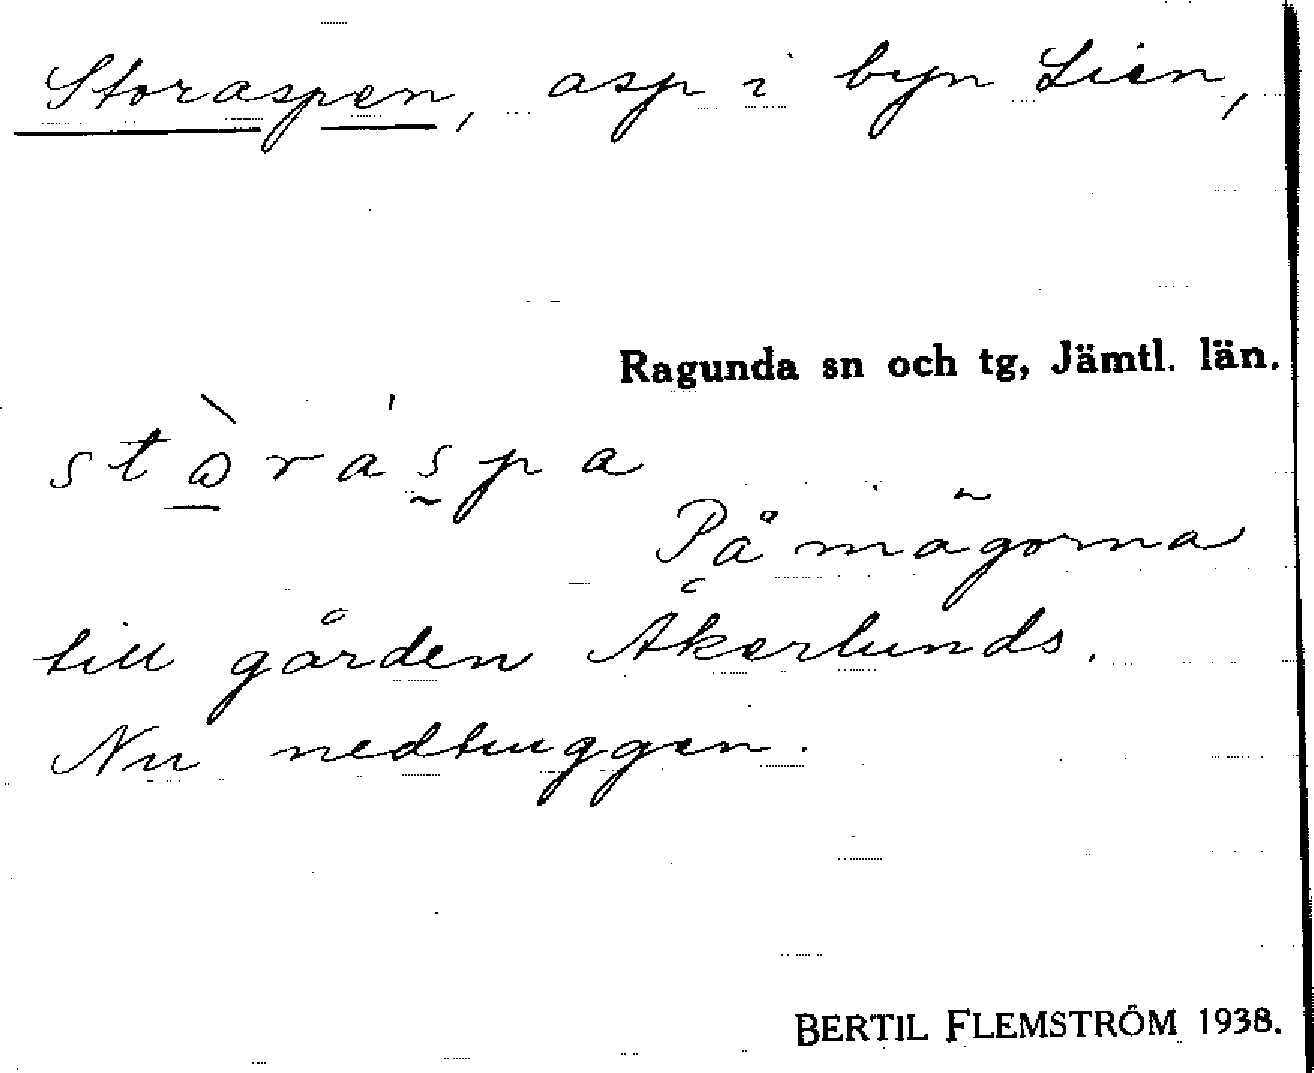 Storaspen, asp i byn Lien,
Ragunda sn och tg, Jämtl. län.
På mägorna
till gården Åkerlunds.
Nu nedhuggen.
BERTIL FLEMSTRÖM 1938.